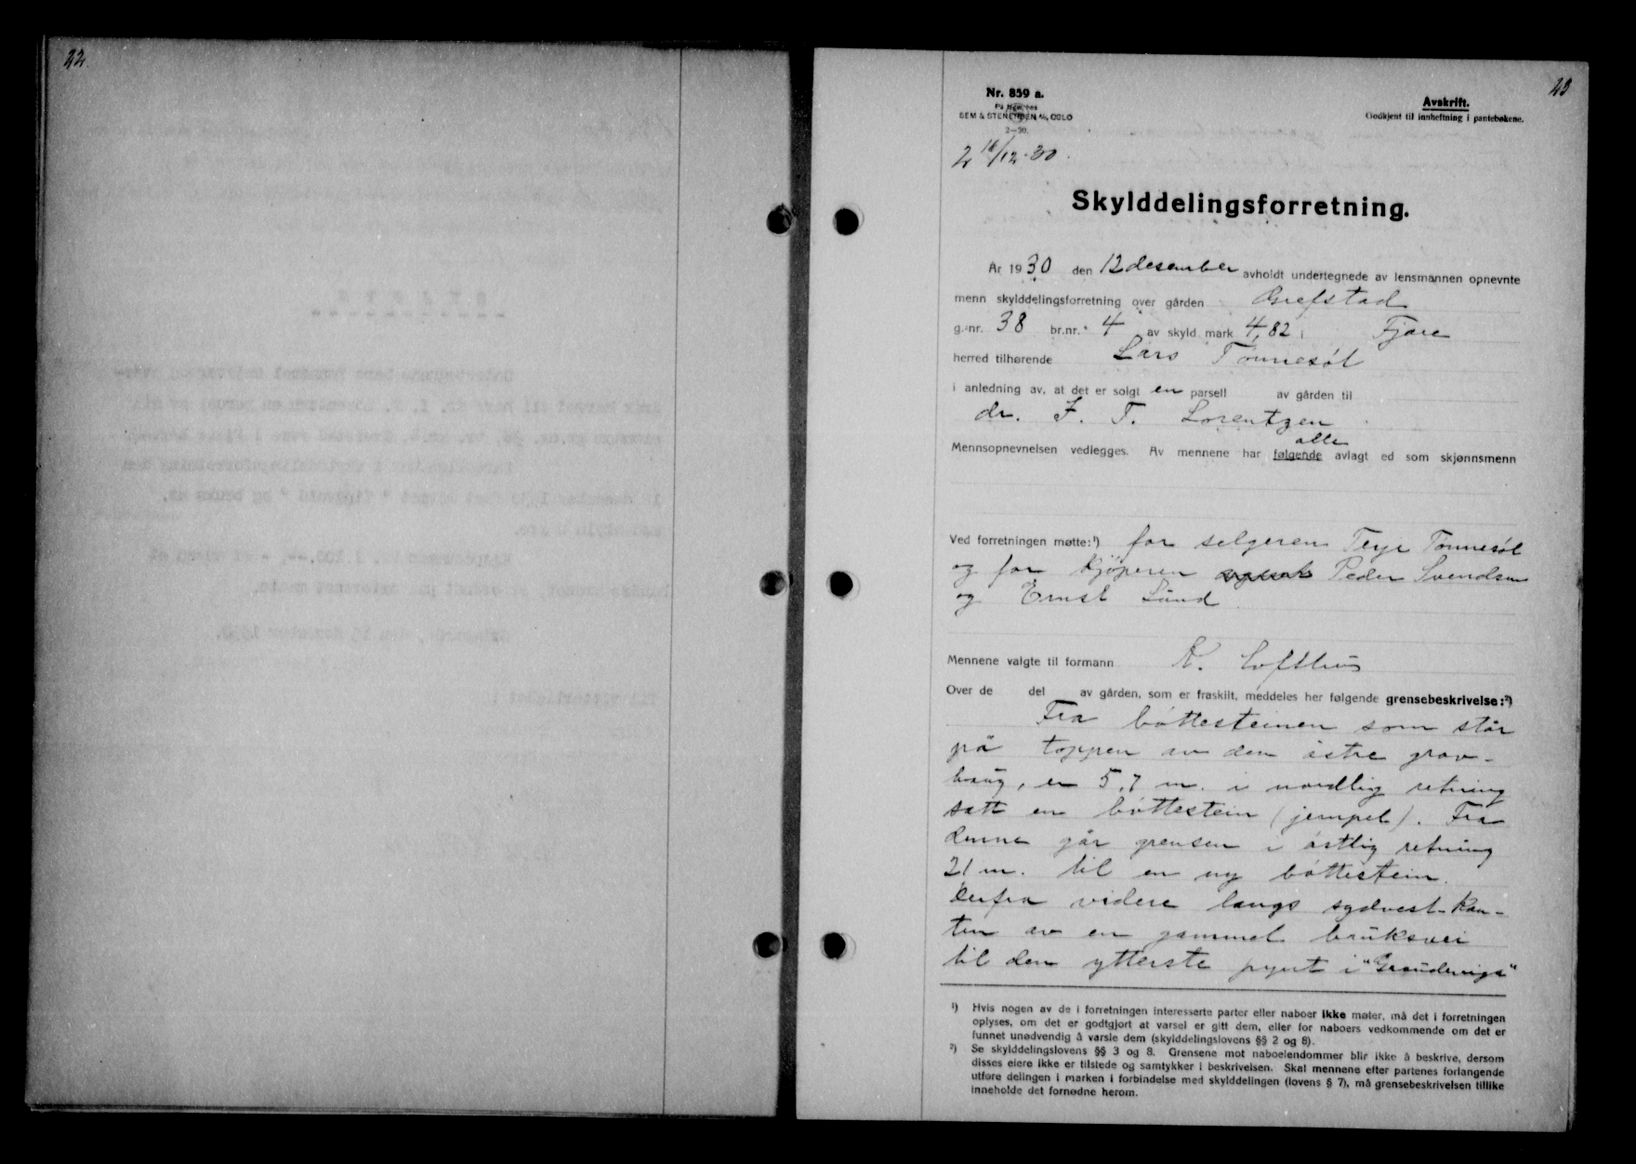 22.
23
Nr. 859 a.
SEM & STENERSEN A/S, OSLO
2—30.
Avskrift.
Godkjent til innheftning i pantebøkene.
2 16/12-30.
Skylddelingsforretning.
År 1930 den 12 desember avholdt undertegnede av lensmannen opnevnte
menn skylddelingsforretning over gården Grefstad
g.nr. 38 br.nr. 4 av skyld mark 4,82 i Fjære
herred tilhørende Lars Tønnesøl
i anledning av, at det er solgt en parsell av gården til
dr. F. T. Lorentzen
Mennsopnevnelsen vedlegges. Av mennene har følgende alle avlagt ed som skjønnsmenn
Ved forretningen møtte:¹) for selgeren Terje Tønnesøl
og for kjöperen Peder Svendsen
og Ernst Lund
Mennene valgte til formann K. Lofthus
Over de del av gården, som er fraskilt, meddeles her følgende grensebeskrivelse:²)
Fra böttesteinen som står
på toppen av den östre grav-
haug, er 5,7 m. i nordlig retning
satt en böttestein (jempel). Fra
denne går grensen i östlig retning
21 m. til en ny böttestein.
Derfra videre langs sydvest-kan-
ten av en gammel bruksvei
til den ytterste pynt i "
¹) Hvis nogen av de i forretningen interesserte parter eller naboer ikke møter, må det i forretningen
oplyses, om det er godtgjort at varsel er gitt dem, eller for naboers vedkommende om det er
funnet unødvendig å varsle dem (skylddelingslovens §§ 2 og 8).
²) Se skylddelingslovens §§ 3 og 8. Grensene mot naboeiendommer blir ikke å beskrive, dersom
disses eiere ikke er tilstede og samtykker i beskrivelsen. Skal mennene efter partenes forlangende
utføre delingen i marken i forbindelse med skylddelingen (lovens § 7), må grensebeskrivelsen tillike
inneholde det fornødne herom.